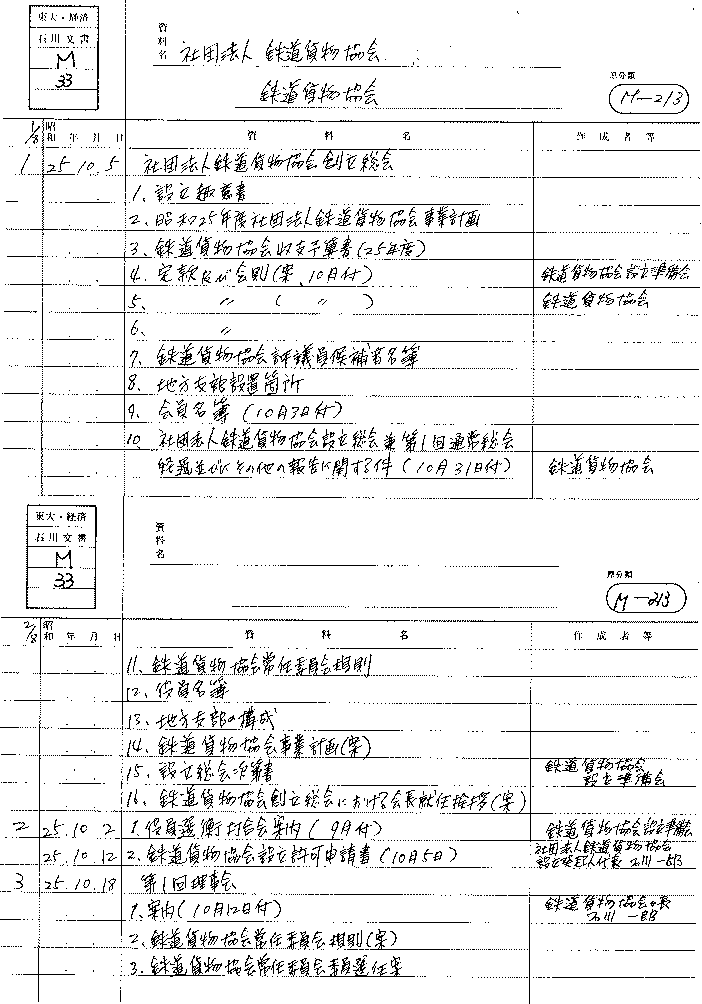 東大・経済
石川文書
M
33
資料名
社団法人 鉄道貨物協会
鉄道貨物協会
原分類
M-213
1/8 昭和 年 月 日 資料名 作成者等
1 25.10.5 社団法人鉄道貨物協会創立総会
1. 設立趣意書
2. 昭和25年度社団法人鉄道貨物協会事業計画
3. 鉄道貨物協会収支予算書(25年度)
4. 定款及び会則(案、10月付) 鉄道貨物協会設立準備会
5. 〃 ( 〃 ) 鉄道貨物協会
6. 〃
7. 鉄道貨物協会評議員候補者名簿
8. 地方支部設置箇所
9. 会員名簿(10月3日付)
10. 社団法人鉄道貨物協会設立総会兼第1回通常総会
経過並びにその他の報告に関する件(10月31日付) 鉄道貨物協会
東大・経済
石川文書
M
33
資料名
原分類
M-213
2/8 昭和 年 月 日 資料名 作成者等
11. 鉄道貨物協会常任委員会規則
12. 役員名簿
13. 地方支部の構成
14. 鉄道貨物協会事業計画(案)
15. 設立総会次第書 鉄道貨物協会
設立準備会
16. 鉄道貨物協会創立総会における会長就任挨拶(案)
2 25.10.2 1. 役員選衡打合会案内(9月付) 鉄道貨物協会設立準備会
25.10.12 2. 鉄道貨物協会設立許可申請書(10月5日) 社団法人鉄道貨物協会
設立発起人代表 石川一郎
3 25.10.18 第1回理事会
1. 案内(10月12日付) 鉄道貨物協会々長
石川一郎
2. 鉄道貨物協会常任委員会規則(案)
3. 鉄道貨物協会常任委員会委員選任案